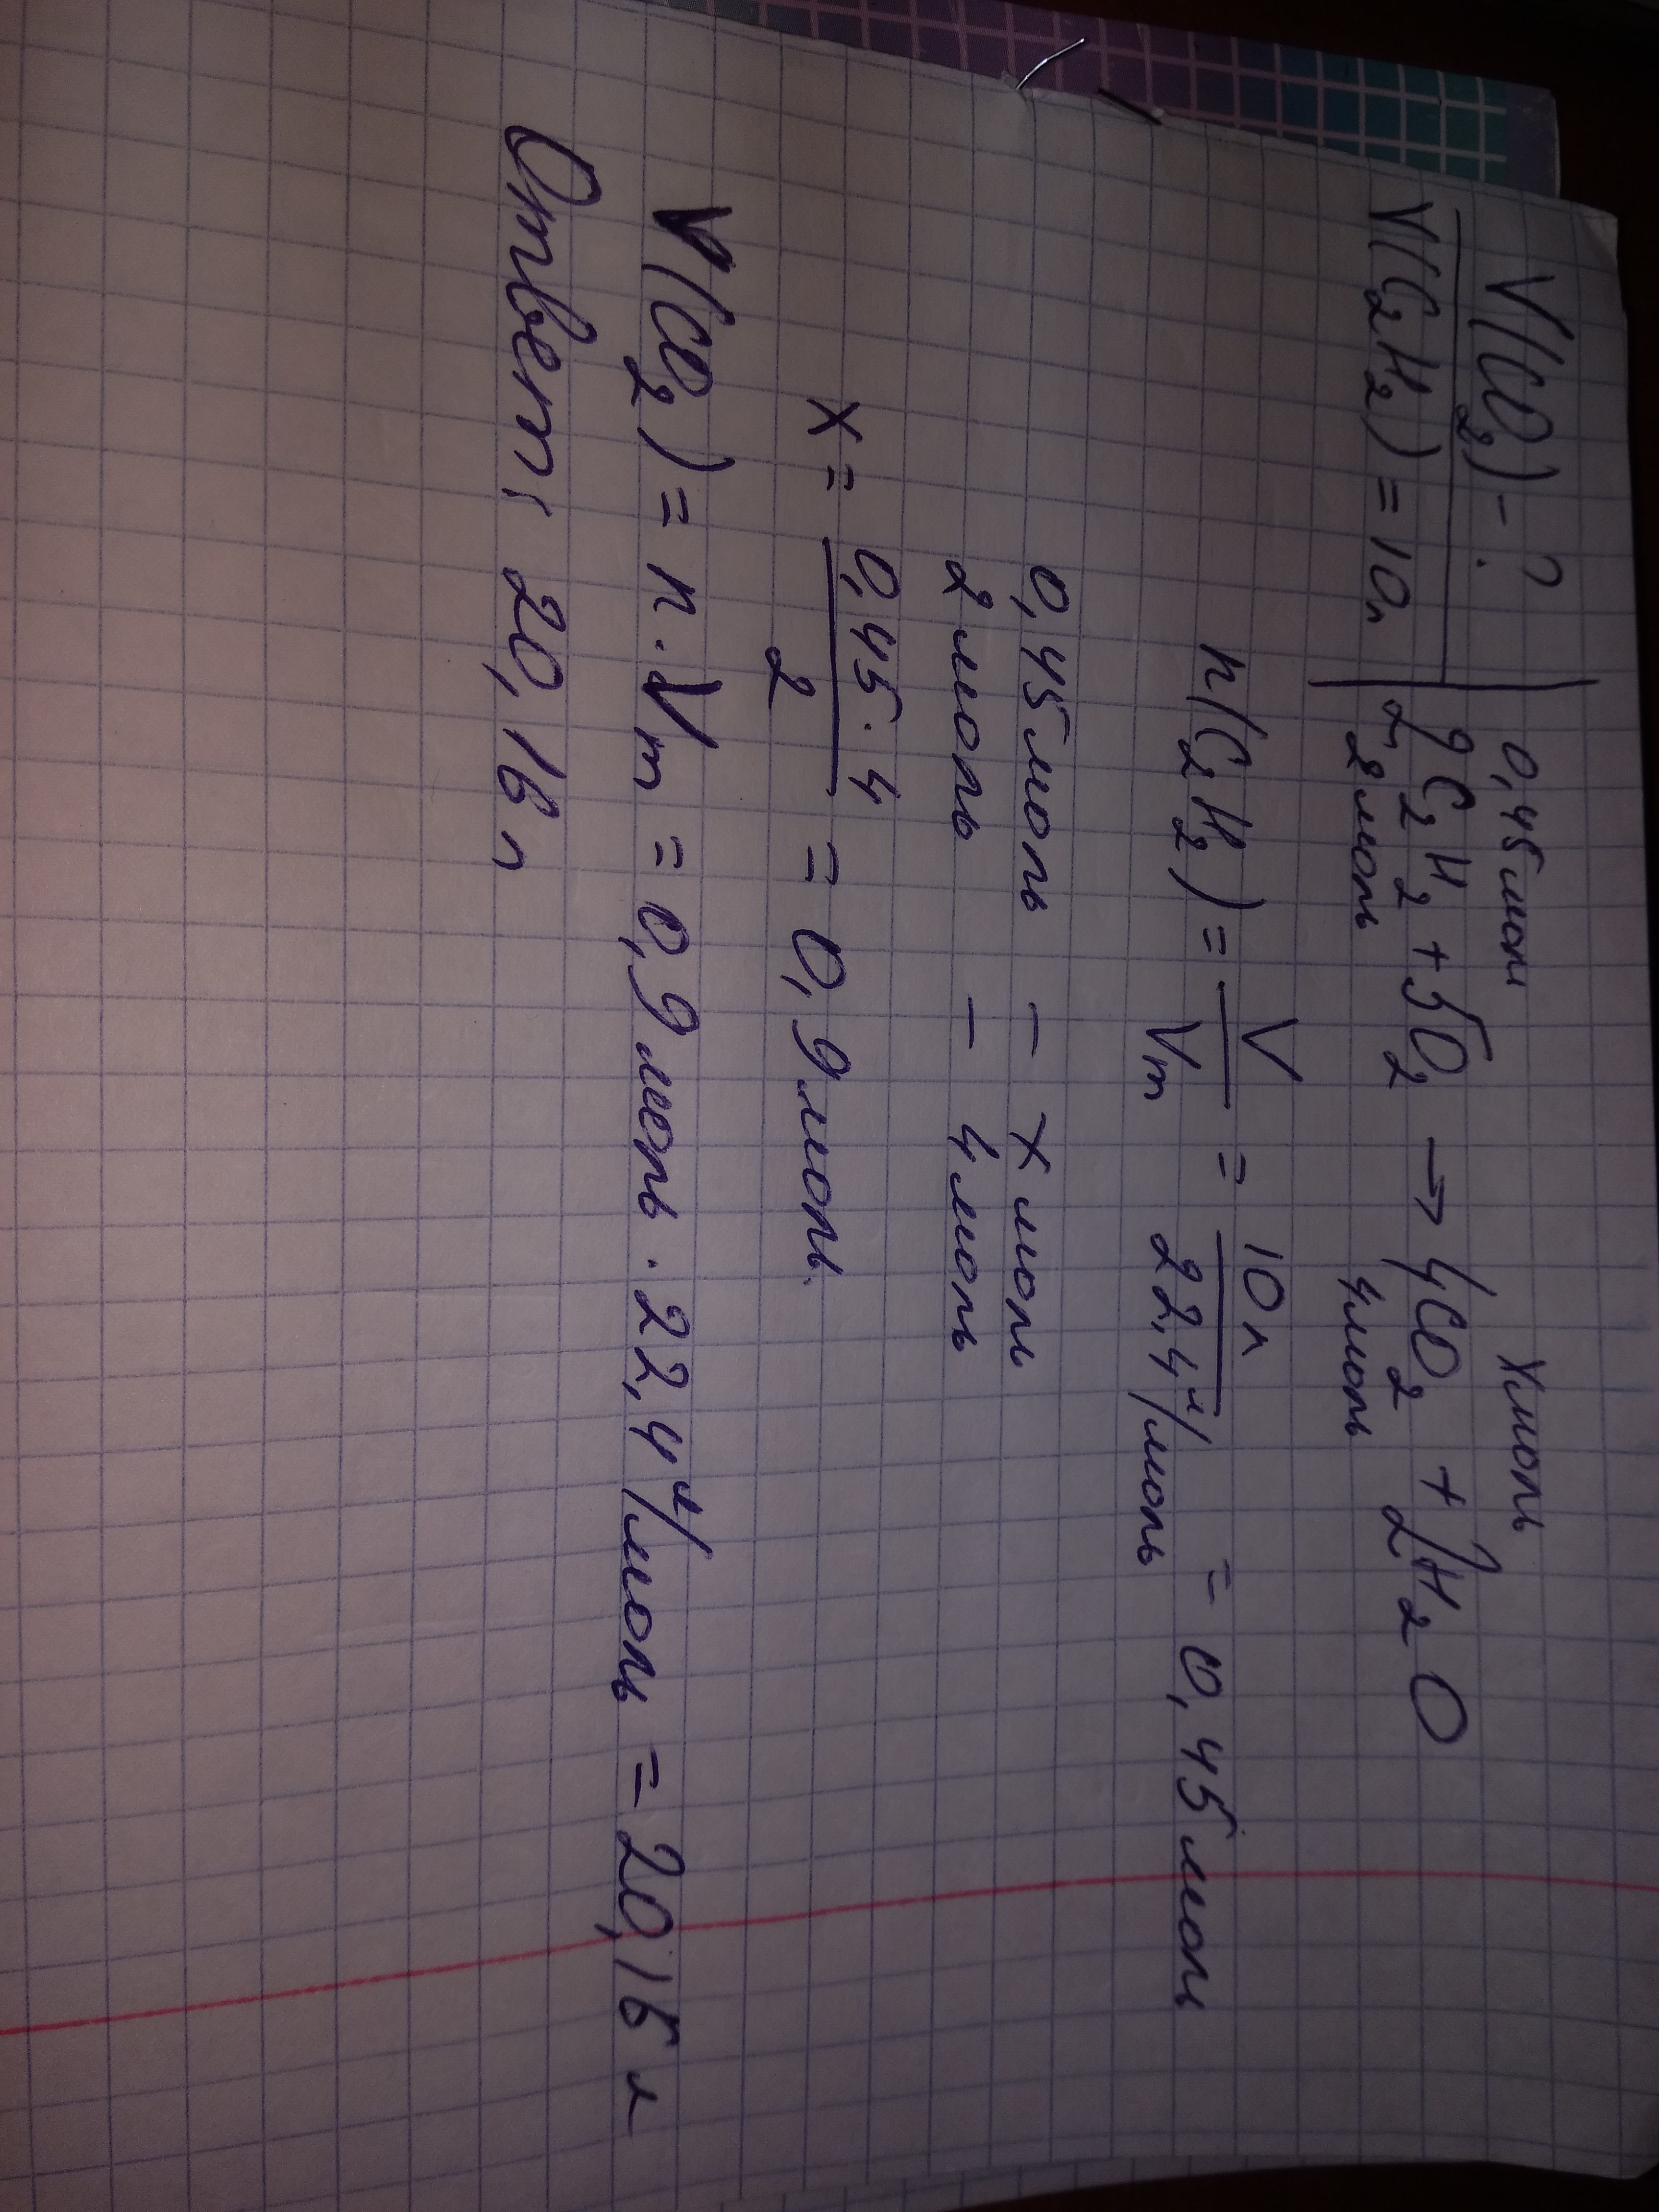 V(CO₂) - ?
V(C₂H₂) = 10л
0,45моль   Xмоль
2C₂H₂ + 5O₂ → 4CO₂ + 2H₂O
2моль   4моль
n(C₂H₂) = V/Vm = 10л/22,4л/моль = 0,45моль
0,45моль – X моль
2моль – 4моль
X = 0,45·4/2 = 0,9моль.
V(CO₂) = n·Vm = 0,9моль · 22,4л/моль = 20,16 л
Ответ: 20,16 л